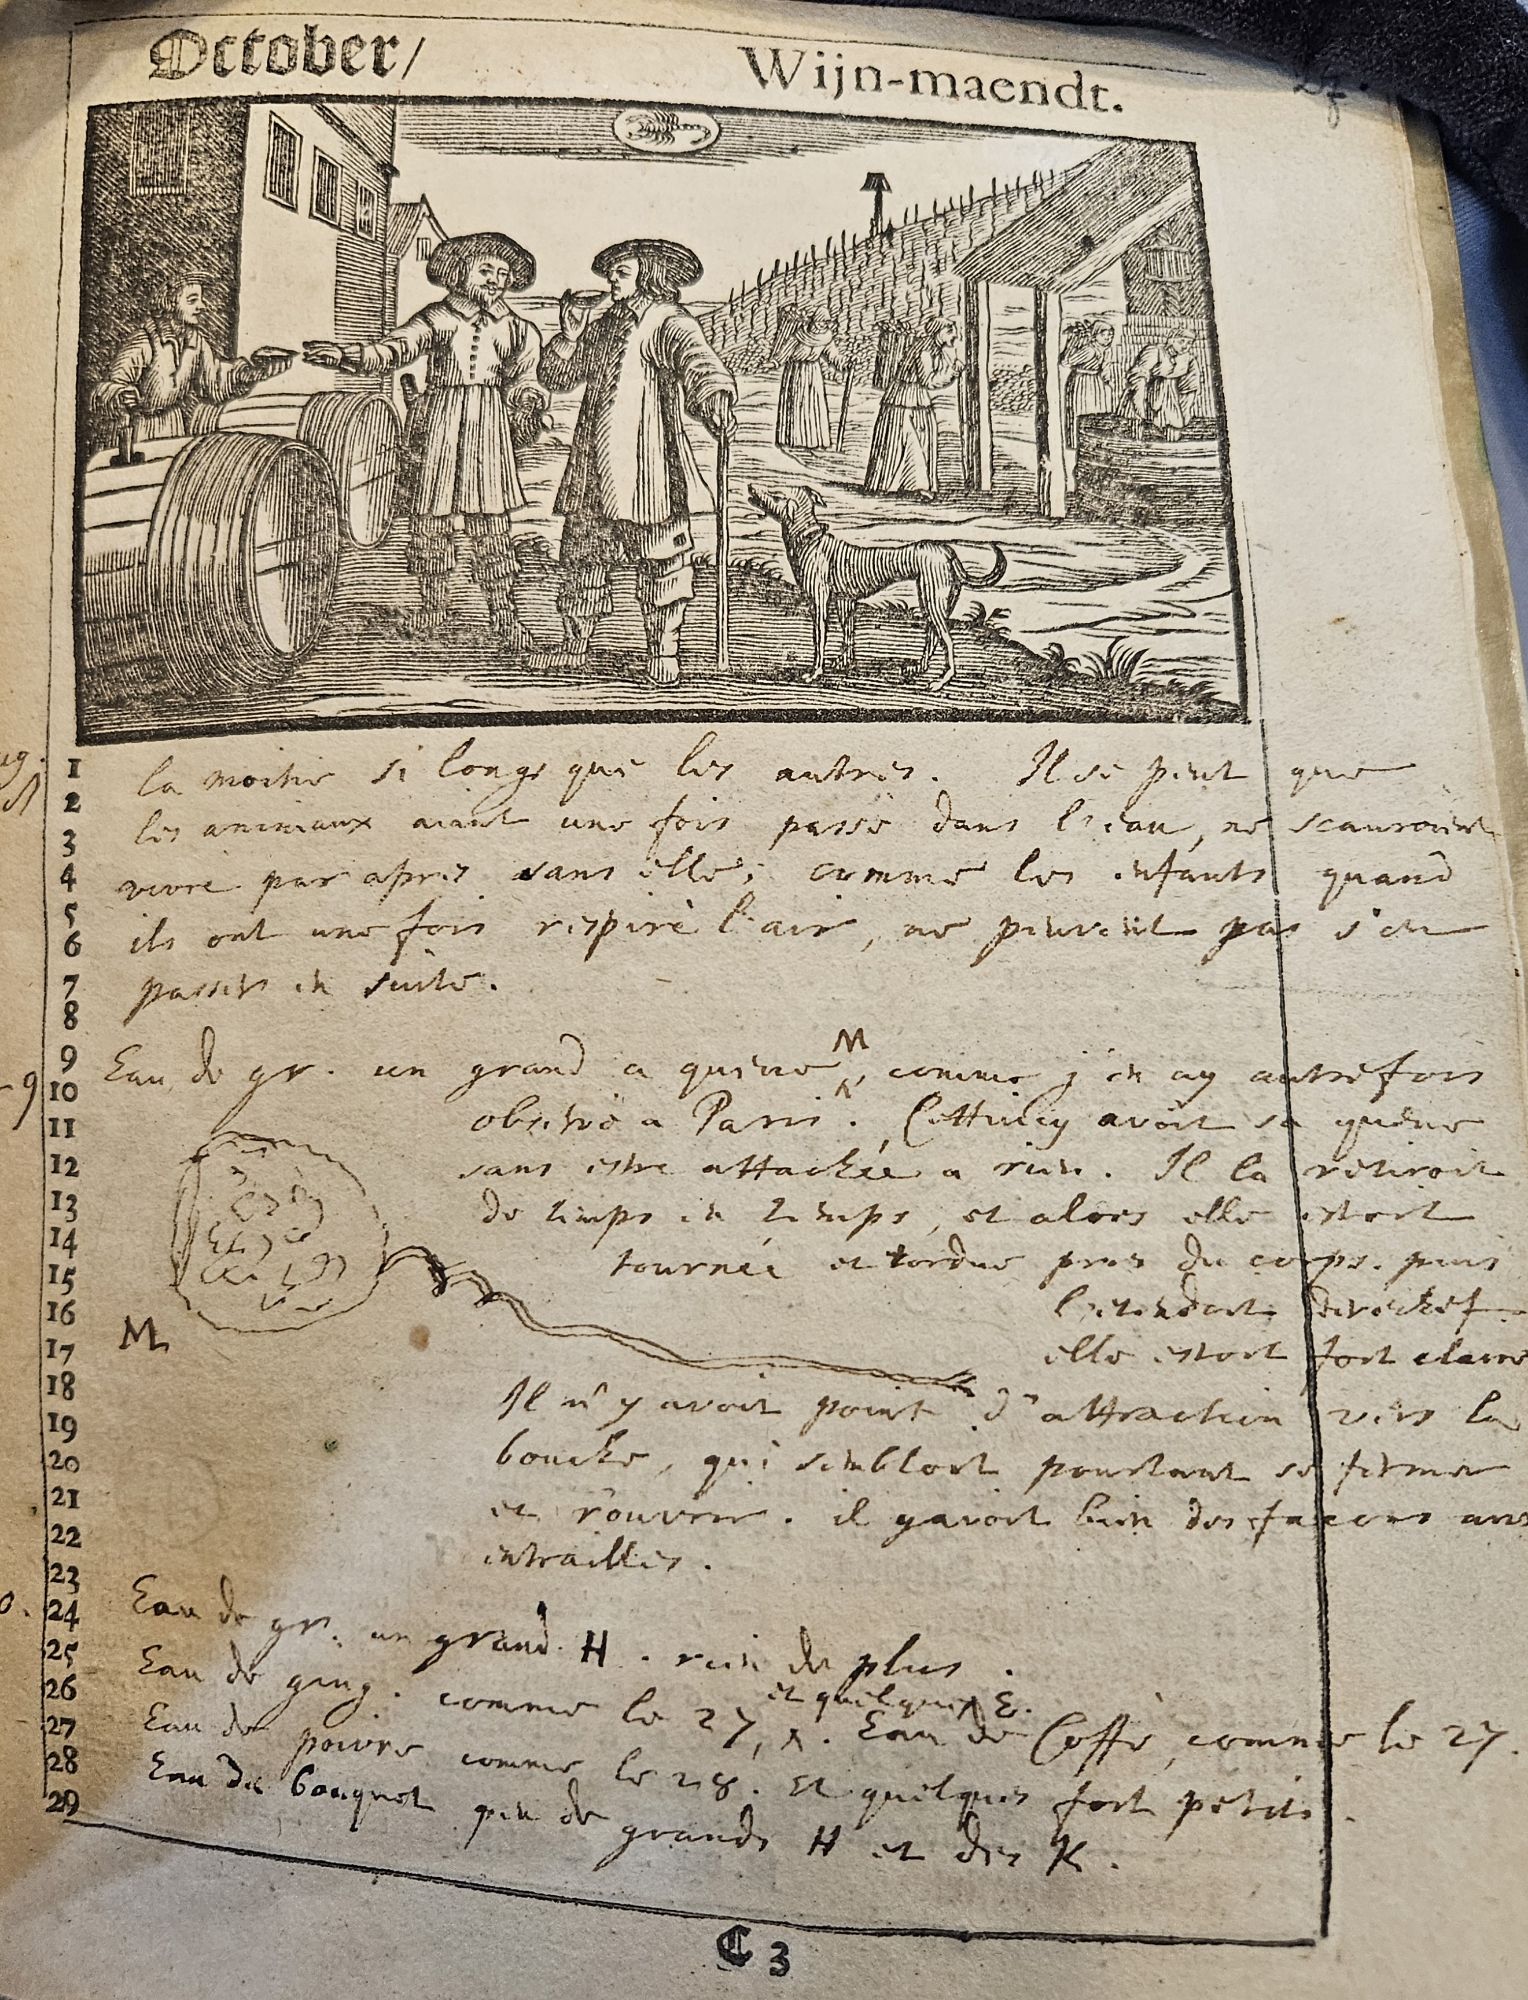 October/ Wijn-maendt.
1
2
3
4
5
6
7
8
9
10
11
12
13
14
15
16
17
18
19
20
21
22
23
24
25
26
27
28
29
la moitie si longs que les autres. Il se peut que
les animaux aiant une fois passè dans l'eau, ne scauroient
vivre par apres sans elle; comme les enfants quand
ils ont une fois respirè l'air, ne peuvent pas s'en
passer en suite.
Eau de gr. un grand a queue M, comme j'en ay autrefois
observè a Paris. Cettuicy avoit sa queue
sans estre attachée a rien. Il la retiroit
de temps en temps, et alors elle estoit
tournée et tordue pres du corps. puis
l'etendoit derechef
elle estoit fort claire
M
Il n'y avoit point d'attraction vers la
bouche, qui sembloit pourtant se fermer
et r'ouvrir. il y avoit bien des facons aux
entrailles.
Eau de gr. un grand H. rien de plus.
et quelques E.
Eau de ging. comme le 27, ʌ. Eau de Coffè, comme le 27.
Eau de poivre comme le 28. Et quelques fort petits.
Eau du bouquet peu de grands H et des K.
C 3